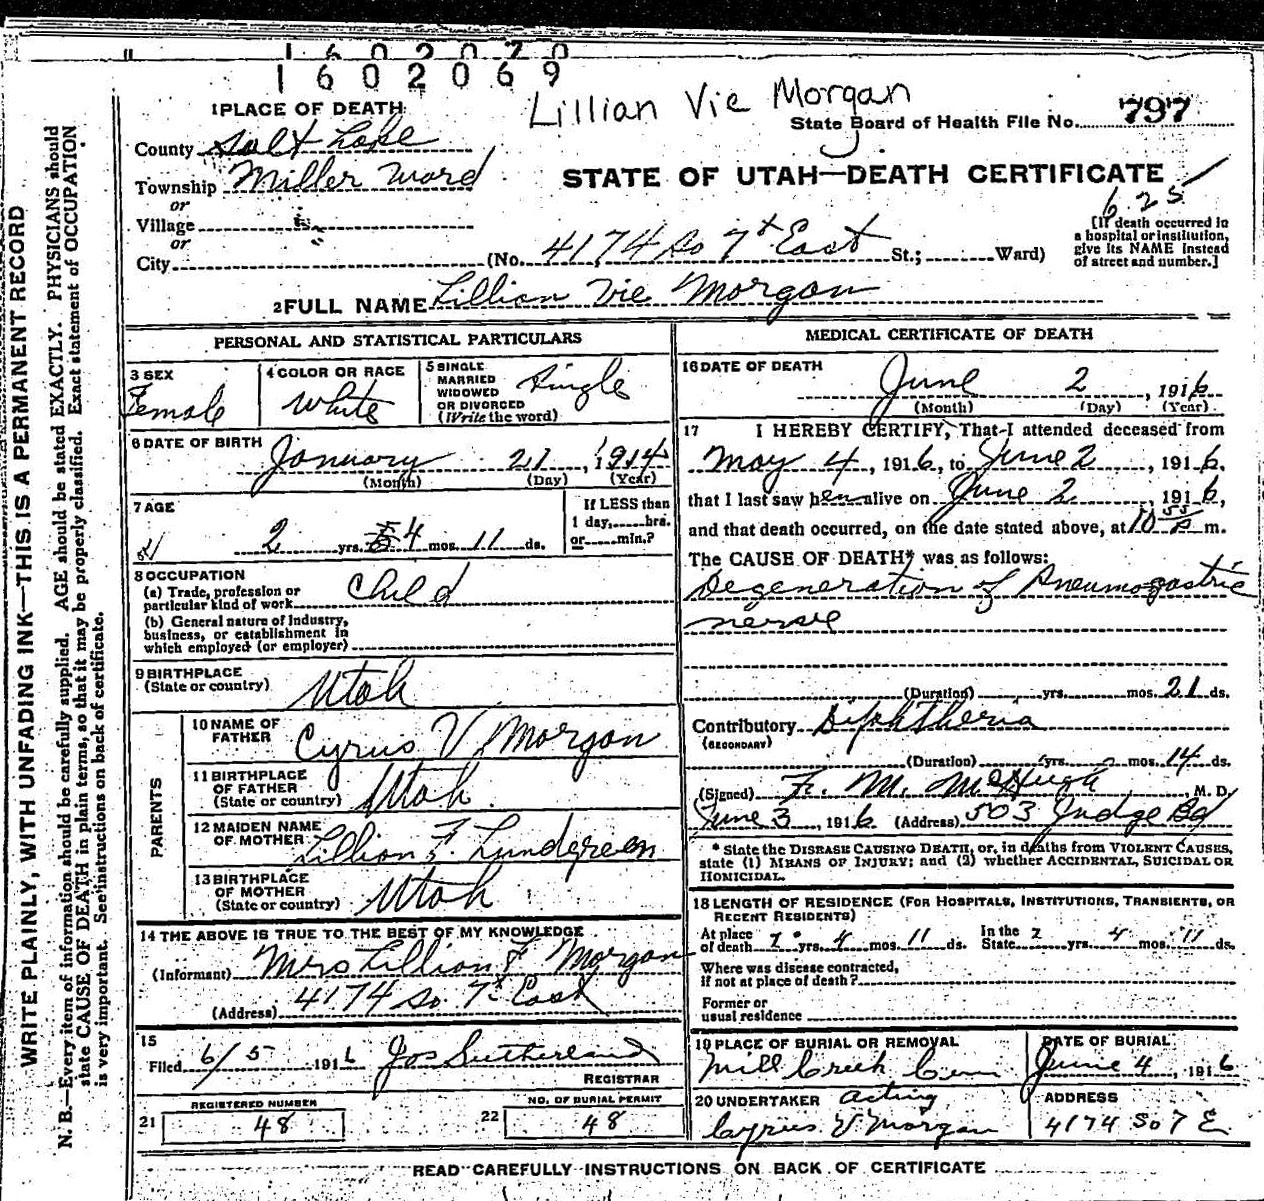 1602070
1602069
Lillian Vie Morgan
1 PLACE OF DEATH
State Board of Health File No. 797
County Salt Lake
Township Miller Ward
STATE OF UTAH—DEATH CERTIFICATE
or
Village
or
City (No. 4174 So 7th East St.; Ward)
625
[If death occurred in
a hospital or institution,
give its NAME instead
of street and number.]
2 FULL NAME Lillian Vie Morgan
PERSONAL AND STATISTICAL PARTICULARS
3 SEX
Female
4 COLOR OR RACE
White
5 SINGLE
MARRIED
WIDOWED
OR DIVORCED
(Write the word)
Single
6 DATE OF BIRTH
January 21, 1914
(Month) (Day) (Year)
7 AGE
2 yrs. 4 mos. 11 ds.
If LESS than
1 day, hrs.
or min.?
8 OCCUPATION
(a) Trade, profession or
particular kind of work Child
(b) General nature of industry,
business, or establishment in
which employed (or employer)
9 BIRTHPLACE
(State or country) Utah
PARENTS
10 NAME OF
FATHER Cyrus V. Morgan
11 BIRTHPLACE
OF FATHER
(State or country) Utah
12 MAIDEN NAME
OF MOTHER Lillian F. Lundgreen
13 BIRTHPLACE
OF MOTHER
(State or country) Utah
14 THE ABOVE IS TRUE TO THE BEST OF MY KNOWLEDGE
(Informant) Mrs Lillian F Morgan
(Address) 4174 So. 7th East
15
Filed 6/5 1916 Jos Sutherland
REGISTRAR
REGISTERED NUMBER
21 48
NO. OF BURIAL PERMIT
22 48
MEDICAL CERTIFICATE OF DEATH
16 DATE OF DEATH
June 2, 1916
(Month) (Day) (Year)
17 I HEREBY CERTIFY, That I attended deceased from
May 4, 1916, to June 2, 1916,
that I last saw her alive on June 2, 1916,
and that death occurred, on the date stated above, at 10 55 m.
The CAUSE OF DEATH* was as follows:
Degeneration of Pneumogastric
nerve
(Duration) yrs. mos. 21 ds.
Contributory Diphtheria
(SECONDARY)
(Duration) yrs. mos. 14 ds.
(Signed) F. M. McHugh, M. D.
June 3, 1916 (Address) 503 Judge Bd
* State the DISEASE CAUSING DEATH, or, in deaths from VIOLENT CAUSES,
state (1) MEANS OF INJURY; and (2) whether ACCIDENTAL, SUICIDAL OR
HOMICIDAL.
18 LENGTH OF RESIDENCE (FOR HOSPITALS, INSTITUTIONS, TRANSIENTS, OR
RECENT RESIDENTS)
At place
of death 2 yrs. 4 mos. 11 ds. In the
State 2 yrs. 4 mos. 11 ds.
Where was disease contracted,
if not at place of death?
Former or
usual residence
19 PLACE OF BURIAL OR REMOVAL
Mill Creek Cem
DATE OF BURIAL
June 4, 1916
20 UNDERTAKER acting
Cyrus V Morgan
ADDRESS
4174 So 7 E.
READ CAREFULLY INSTRUCTIONS ON BACK OF CERTIFICATE
WRITE PLAINLY, WITH UNFADING INK—THIS IS A PERMANENT RECORD
N. B.—Every item of information should be carefully supplied. AGE should be stated EXACTLY. PHYSICIANS should
state CAUSE OF DEATH in plain terms, so that it may be properly classified. Exact statement of OCCUPATION
is very important. See instructions on back of certificate.